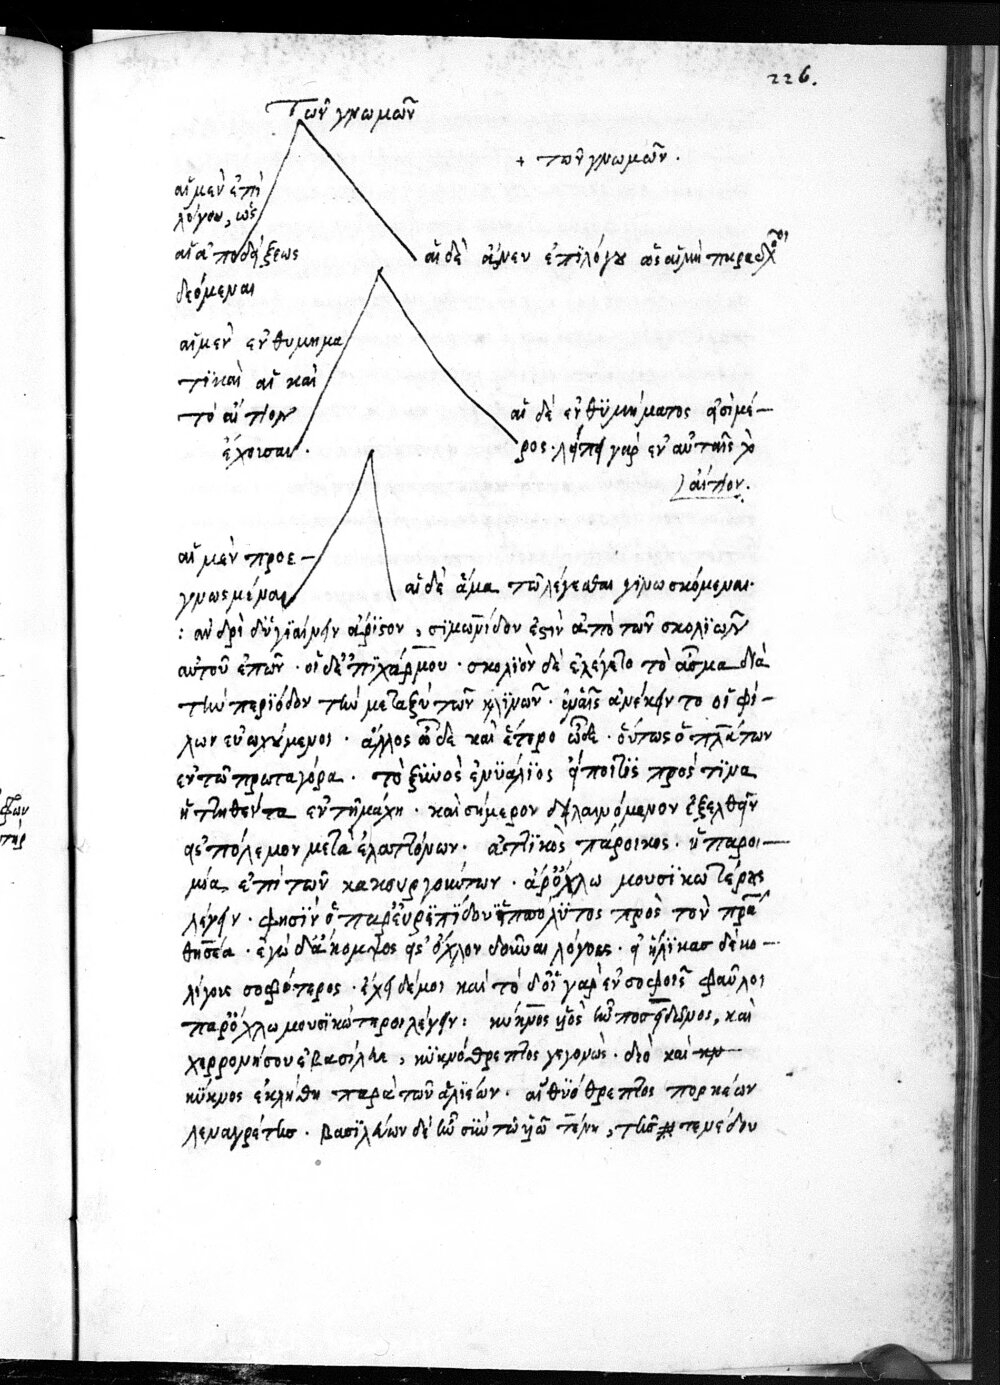 226.
Τῶν γνωμῶν
+ τῶν γνωμῶν.
αἱ μὲν ἐπὶ
λόγου, ὡς
αἱ ἀποδείξεως
δεόμεναι
αἱ δὲ ἄνευ ἐπιλόγου ὡς αἱ μὴ παράδοξοι
αἱ μὲν ἐνθυμημα
τικαὶ αἱ καὶ
τὸ αἴτιον
ἔχουσαι.
αἱ δὲ ἐνθυμήματος εἰσὶ μέ-
ρος. λείπει γὰρ ἐν αὐταῖς τὸ
αἴτιον.
αἱ μὲν προε-
γνωσμέναι
αἱ δὲ ἅμα τῶ λέγεσθαι γινωσκόμεναι.
: ἀνδρὶ δ' ὑγιαίνειν ἄριστον, σιμωνίδου ἐστὶν ἀπὸ τῶν σκολιῶν
αὐτοῦ ἐπῶν. οἱ δὲ ἐπιχάρμου. σκολιὸν δὲ ἐλέγετο τὸ ἆσμα διὰ
τὴν περίοδον τὴν μεταξὺ τῶν κλινῶν. ἐν αἷς ἀνέκειντο οἱ φί-
λων εὐωχούμενοι. ἄλλος ὧδε καὶ ἕτερο ὧδε. οὕτως ὁ πλάτων
ἐν τῶ πρωταγόρα. τὸ ξυνὸς ἐνυάλιος εἴποι τις πρός τινα
ἡττηθέντα ἐν τῆ μάχη. καὶ σήμερον εὐλαβούμενον ἐξελθεῖν
εἰς πόλεμον μετὰ ἐλαττόνων. ἀττικὸς πάροικος. ἡ παροι-
μία ἐπὶ τῶν κακουργούντων. παρ' ὄχλω μουσικωτέρους
λέγειν. φησὶν ὁ παρ' εὐριπίδου ἱππόλυτος πρὸς τὸν πρα
θησέα. ἐγὼ δ' ἄκομψος εἰς ὄχλον δοῦναι λόγους. εἰς ἥλικας δὲ κο-
λίγους σοφώτερος. ἔχει δέ μοι καὶ τόδ' οἱ γὰρ ἐν σοφοῖς φαῦλοι
παρ' ὄχλω μουσικώτεροι λέγειν: κύκνος υἱὸς ἦν ποσειδῶνος, καὶ
χερρονήσου βασίλευε, κυκνόθρεπτος γεγονώς. διὸ καὶ κυ
κύκνος ἐκλήθη παρὰ τῶν ἁλιέων. αἰθυιόθρεπτος πορκέων
λεναγρέτης. βασιλεύων δὲ ἦν σὺν τῶ υἱῶ τένη, τῆς τενέδου